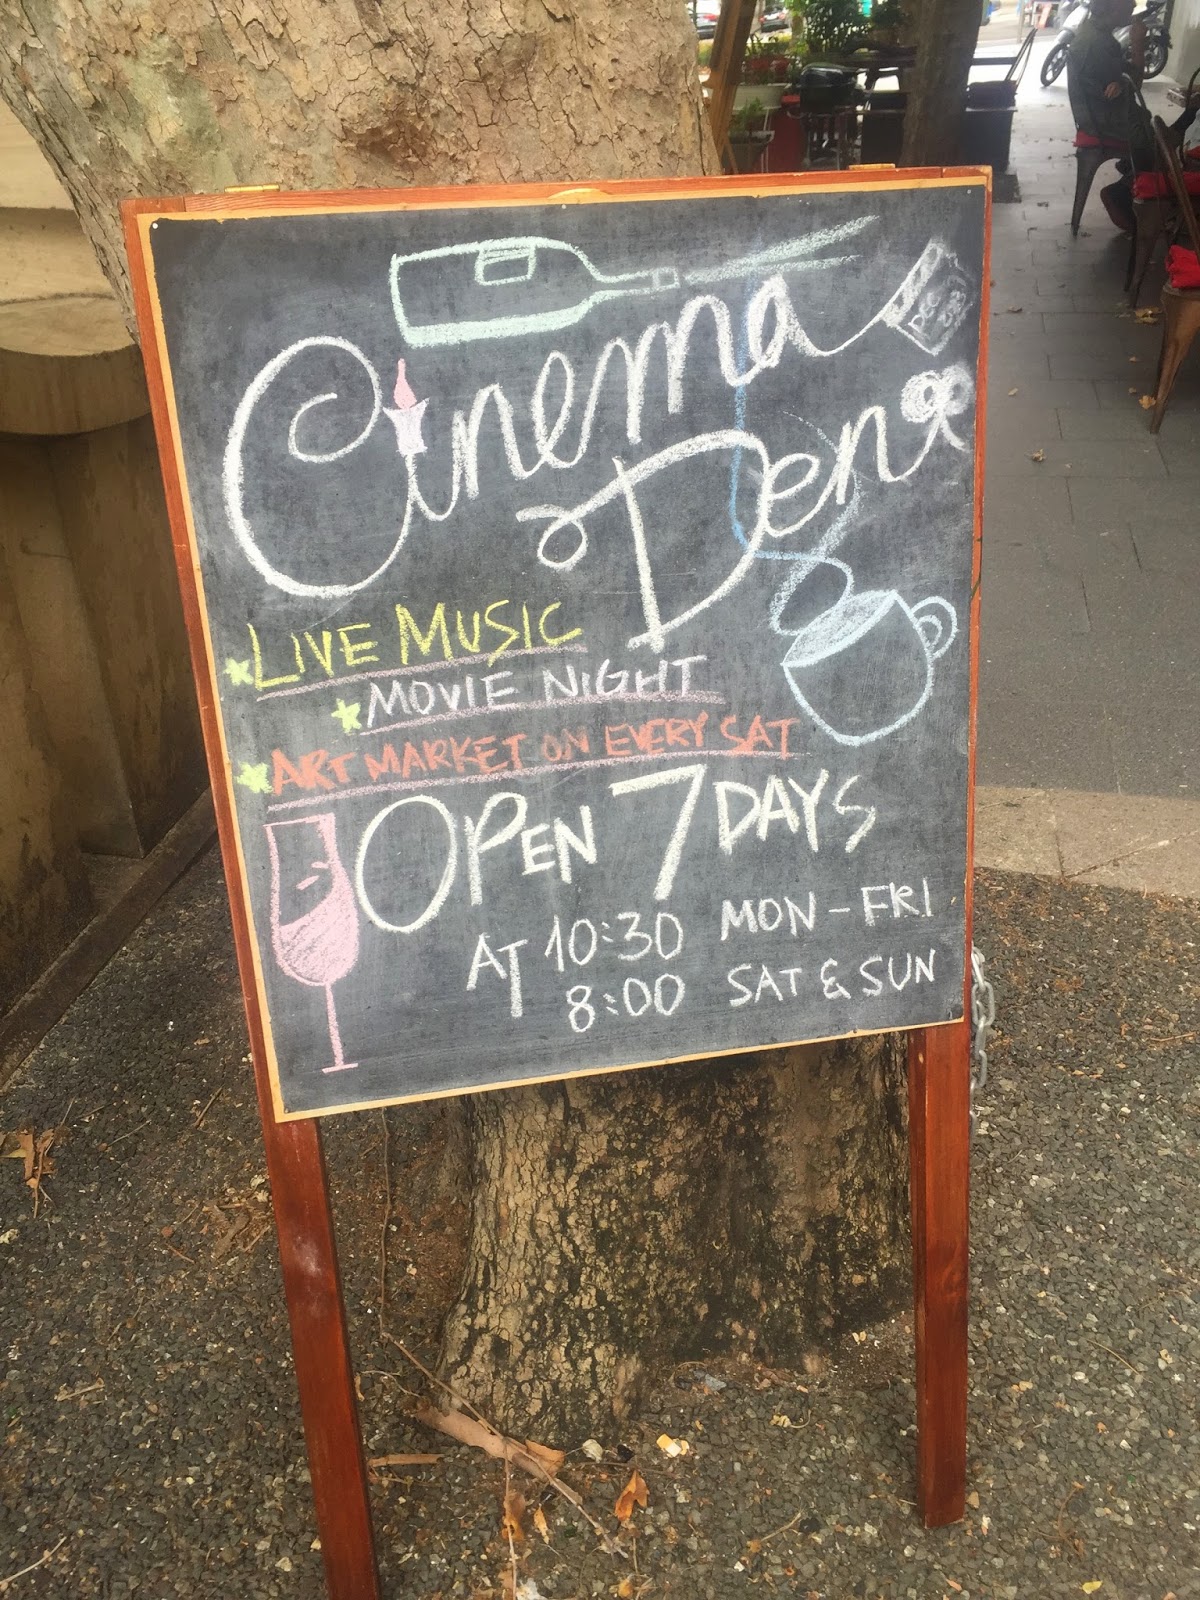 Cinema
Den
LIVE MUSIC
MOVIE NIGHT
ART MARKET ON EVERY SAT
OPEN 7 DAYS
AT 10:30 MON - FRI
8:00 SAT & SUN